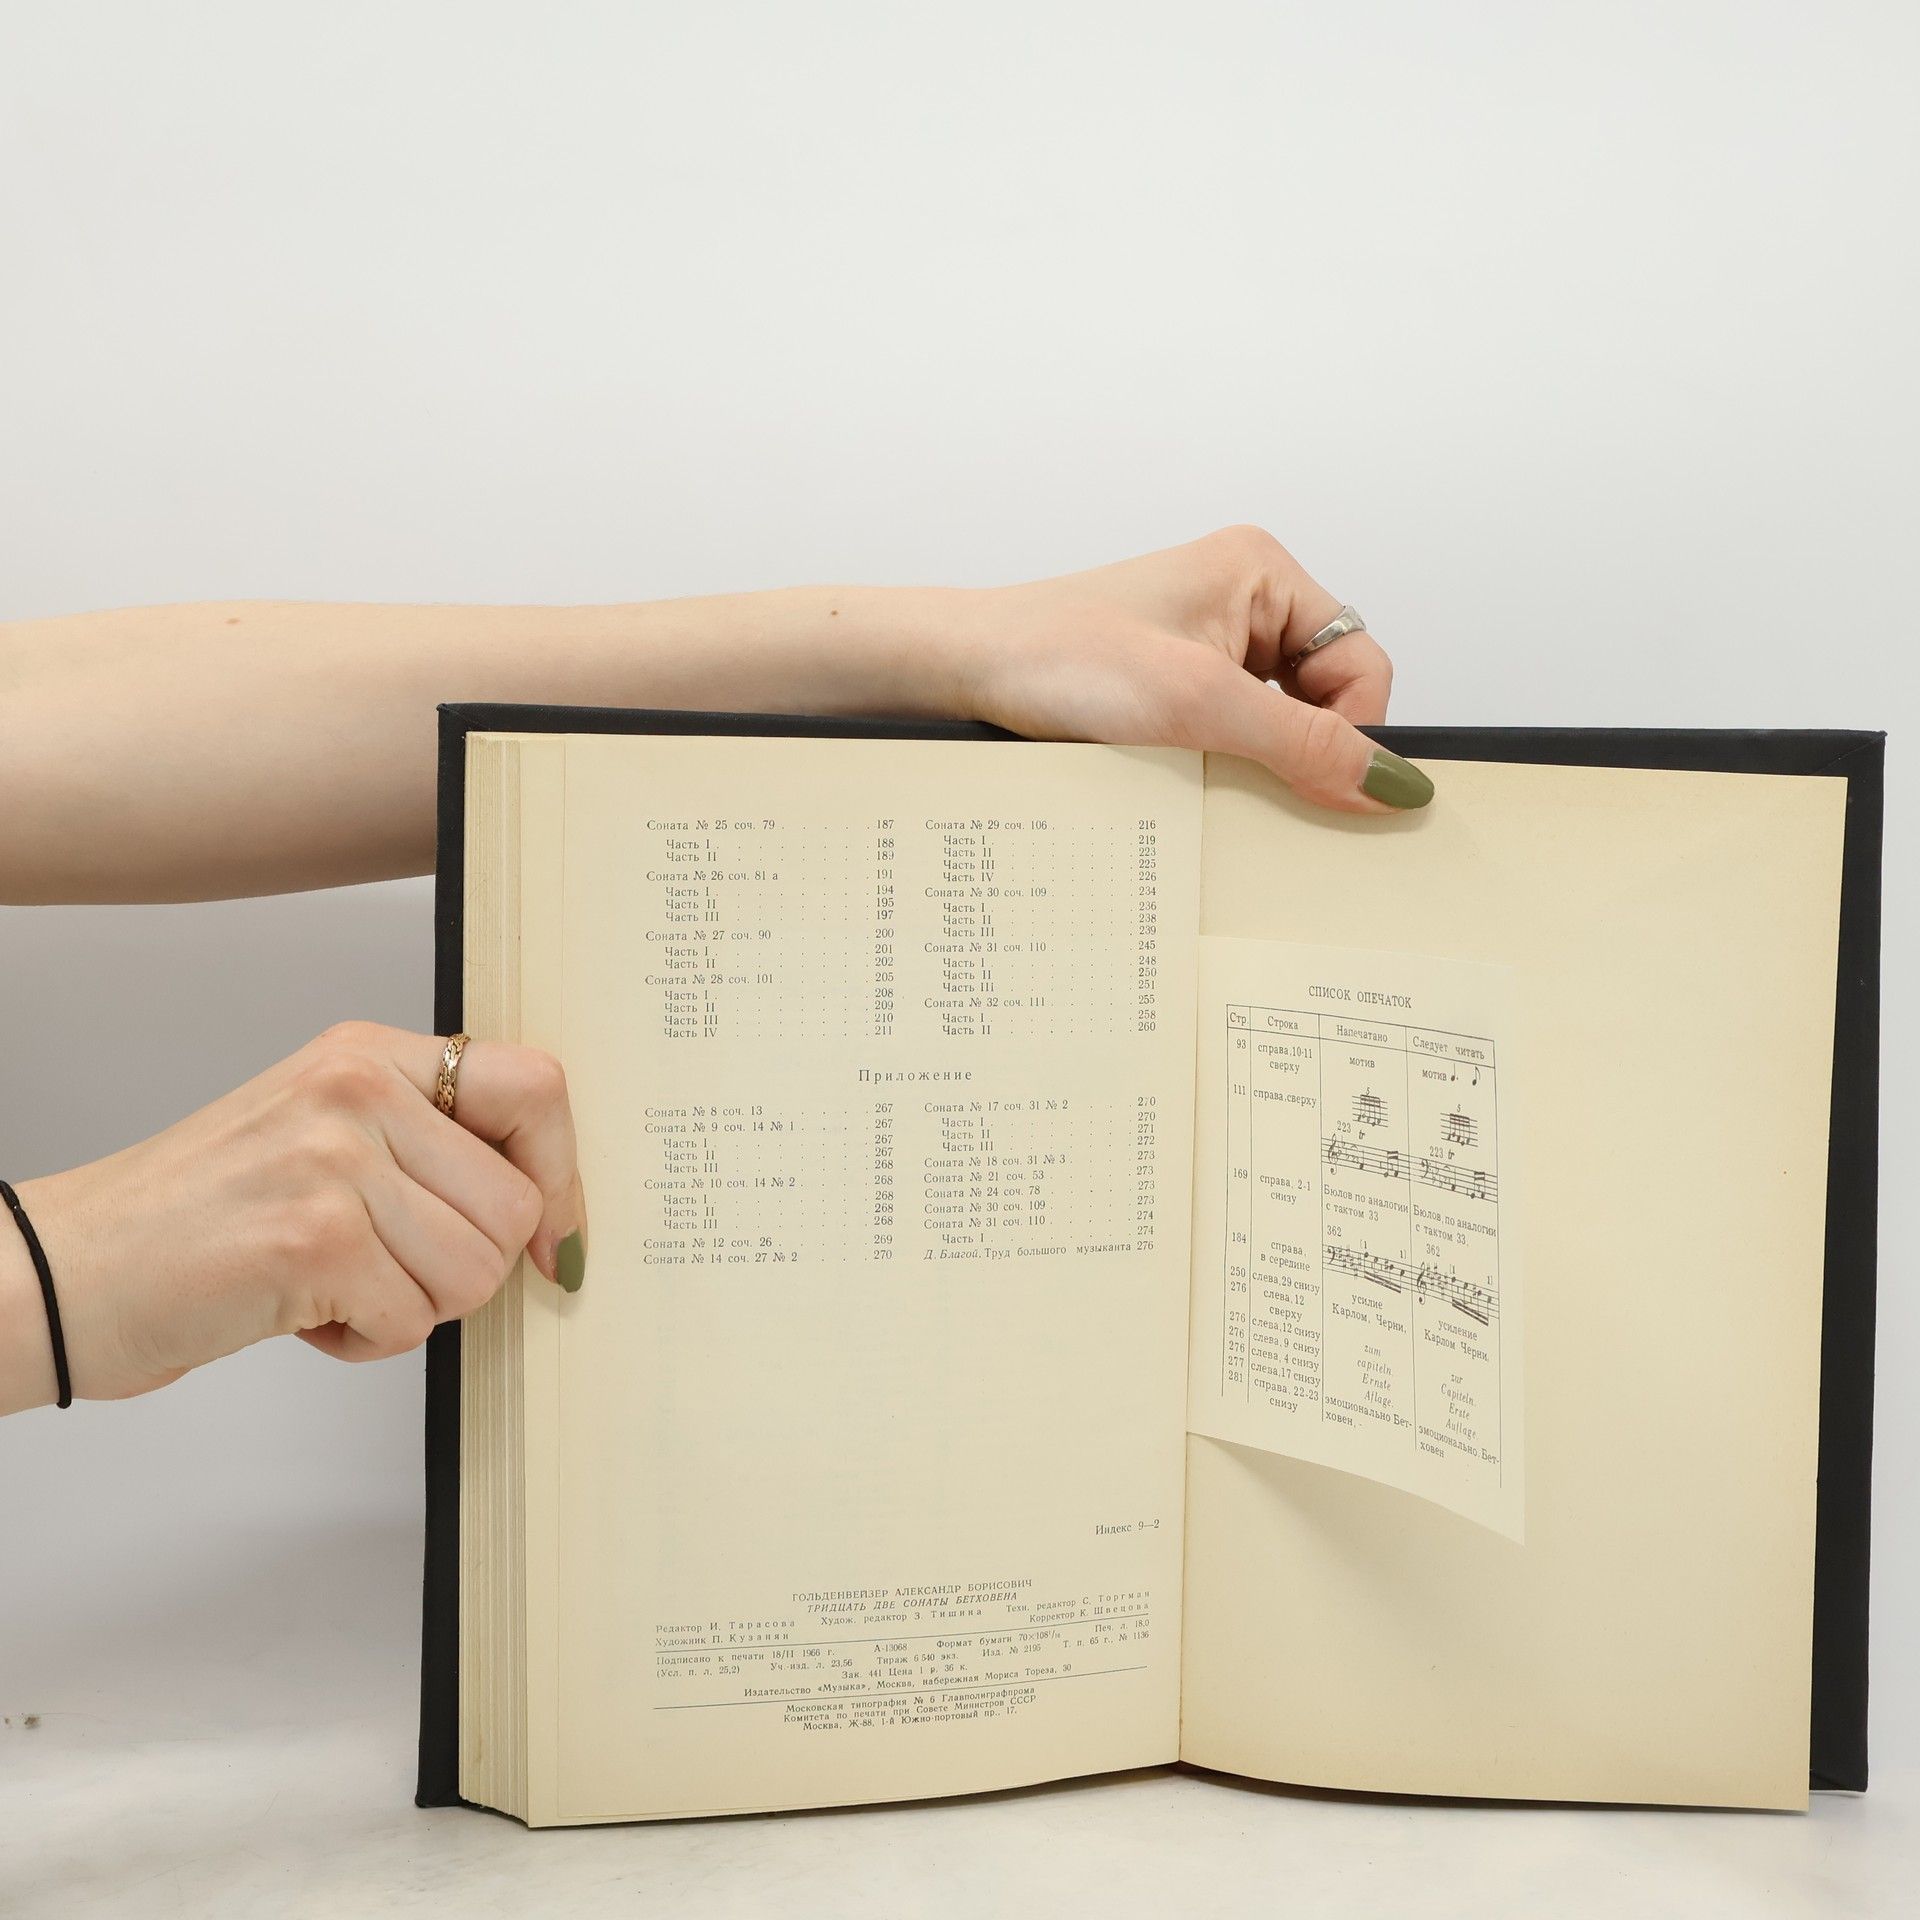 Соната № 25 соч. 79 . . . . . 187
Часть I . . . . . . . . 188
Часть II . . . . . . . 189
Соната № 26 соч. 81 а . . . . 191
Часть I . . . . . . . . 194
Часть II . . . . . . . 195
Часть III . . . . . . . 197
Соната № 27 соч. 90 . . . . . 200
Часть I . . . . . . . . 201
Часть II . . . . . . . 202
Соната № 28 соч. 101 . . . . . 205
Часть I . . . . . . . . 208
Часть II . . . . . . . 209
Часть III . . . . . . . 210
Часть IV . . . . . . . 211
Соната № 29 соч. 106 . . . . . 216
Часть I . . . . . . . . 219
Часть II . . . . . . . 223
Часть III . . . . . . . 225
Часть IV . . . . . . . 226
Соната № 30 соч. 109 . . . . . 234
Часть I . . . . . . . . 236
Часть II . . . . . . . 238
Часть III . . . . . . . 239
Соната № 31 соч. 110 . . . . . 245
Часть I . . . . . . . . 248
Часть II . . . . . . . 250
Часть III . . . . . . . 251
Соната № 32 соч. 111 . . . . . 255
Часть I . . . . . . . . 258
Часть II . . . . . . . 260
Приложение
Соната № 8 соч. 13 . . . . . 267
Соната № 9 соч. 14 № 1 . . . . 267
Часть I . . . . . . . . 267
Часть II . . . . . . . 267
Часть III . . . . . . . 268
Соната № 10 соч. 14 № 2 . . . . 268
Часть I . . . . . . . . 268
Часть II . . . . . . . 268
Часть III . . . . . . . 268
Соната № 12 соч. 26 . . . . . 269
Соната № 14 соч. 27 № 2 . . . 270
Соната № 17 соч. 31 № 2 . . . 270
Часть I . . . . . . . . 270
Часть II . . . . . . . 271
Часть III . . . . . . . 272
Соната № 18 соч. 31 № 3 . . . . 273
Соната № 21 соч. 53 . . . . . 273
Соната № 24 соч. 78 . . . . . 273
Соната № 30 соч. 109 . . . . . 273
Соната № 31 соч. 110 . . . . . 274
Часть I . . . . . . . . 274
Д. Благой. Труд большого музыканта 276
Индекс 9—2
ГОЛЬДЕНВЕЙЗЕР АЛЕКСАНДР БОРИСОВИЧ
ТРИДЦАТЬ ДВЕ СОНАТЫ БЕТХОВЕНА
Редактор И. Тарасова Худож. редактор З. Тишина Техн. редактор С. Торгман
Художник П. Кузанян Корректор К. Швецова
Подписано к печати 18/II 1966 г. А-13068 Формат бумаги 70×108¹/₁₆ Печ. л. 18,0
(Усл. п. л. 25,2) Уч.-изд. л. 23,56 Тираж 6 540 экз. Изд. № 2195 Т. п. 65 г., № 1136
Зак. 441 Цена 1 р. 36 к.
Издательство «Музыка», Москва, набережная Мориса Тореза, 30
Московская типография № 6 Главполиграфпрома
Комитета по печати при Совете Министров СССР
Москва, Ж-88, 1-й Южно-портовый пр., 17.
СПИСОК ОПЕЧАТОК
Стр. Строка Напечатано Следует читать
93 справа,10-11 мотив мотив
сверху
111 справа,сверху 5 5
223 tr 223 tr
169 справа, 2-1 Бюлов по аналогии Бюлов, по аналогии
снизу с тактом 33 с тактом 33,
184 справа, 362 362
в середине [1 1] [1 1]
250 слева,29 снизу усилие усиление
276 слева,12 Карлом, Черни, Карлом Черни,
сверху
276 слева,12 снизу zum zur
276 слева, 9 снизу capiteln. Capiteln.
276 слева, 4 снизу Ernste Erste
277 слева,17 снизу Aflage. Auflage.
281 справа, 22-23 эмоционально Бет- эмоционально. Бет-
снизу ховен, - ховен